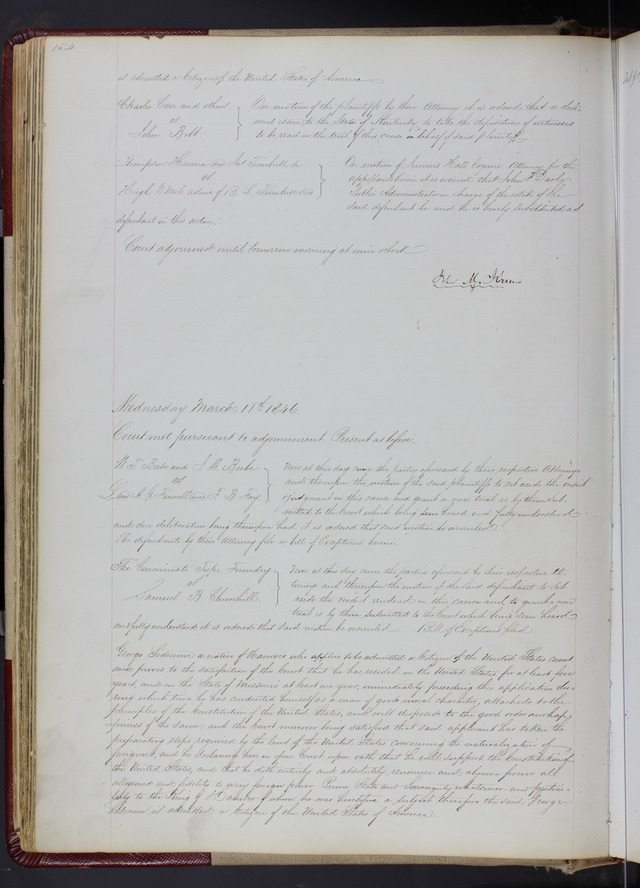 154
is admitted a Citizen of the United States of America
Charles Carr and others
vs
John Bobb
On motion of the plaintiffs by their Attorney it is ordered that a
issue to the State of Kentucky to take the depositions of witnesses
to be read in the trial of this cause in behalf of said plaintiffs
vs
Hugh admr of B. L. Turnbull
On motion of Hall Esquire Attorney for the
it is ordered that John F. Darby
Public Administrator in charge of the estate of the
said defendant be and he is hereby substituted as
defendant in this action.
Court adjourned until tomorrow morning at nine oclock
John M. Krum
Wednesday March 11th 1846
Court met pursuant to adjournment. Present as before.
W. T. and J. W.
vs
F. B. Fay
Now at this day come the parties aforesaid by their respective Attorneys
and thereupon the motion of the said plaintiffs to set aside the
judgment in this cause and grant a new trial is by them sub-
mitted to the Court which being seen heard and fully understood
and due deliberation being thereupon had it is ordered that said motion be overruled.
The defendants by their Attorney file a bill of Exceptions herein.
The Cincinnati Type Foundry
vs
Samuel B. Churchill
Now at this day come the parties aforesaid by their respective At-
torneys and thereupon the motion of the said defendant to set
aside the verdict rendered in this cause and to grant a new
trial is by them submitted to the Court which being seen heard
and fully understood it is ordered that said motion be overruled. Bill of Exceptions filed
George a native of Hanover who applies to be admitted a Citizen of the United States comes
and proves to the satisfaction of the Court that he has resided in the United States for at least five
years, and in the State of Missouri at least one year, immediately preceding this application du-
ring which time he has conducted himself as a man of good moral character, attached to the
principles of the Constitution of the United States, and well disposed to the good order and hap-
piness of the same: and the Court moreover being satisfied that said applicant has taken the
preparatory steps required by the laws of the United States concerning the naturalization of
foreigners, and he declaring here in open Court upon oath that he will support the Constitution of
the United States, and that he doth entirely and absolutely renounce and abjure forever all
allegiance and fidelity to every foreign power Prince State and Sovereignty whatsoever and particu-
larly to the King of Hanover of whom he was heretofore a subject therefore the said George
is admitted a Citizen of the United States of America.